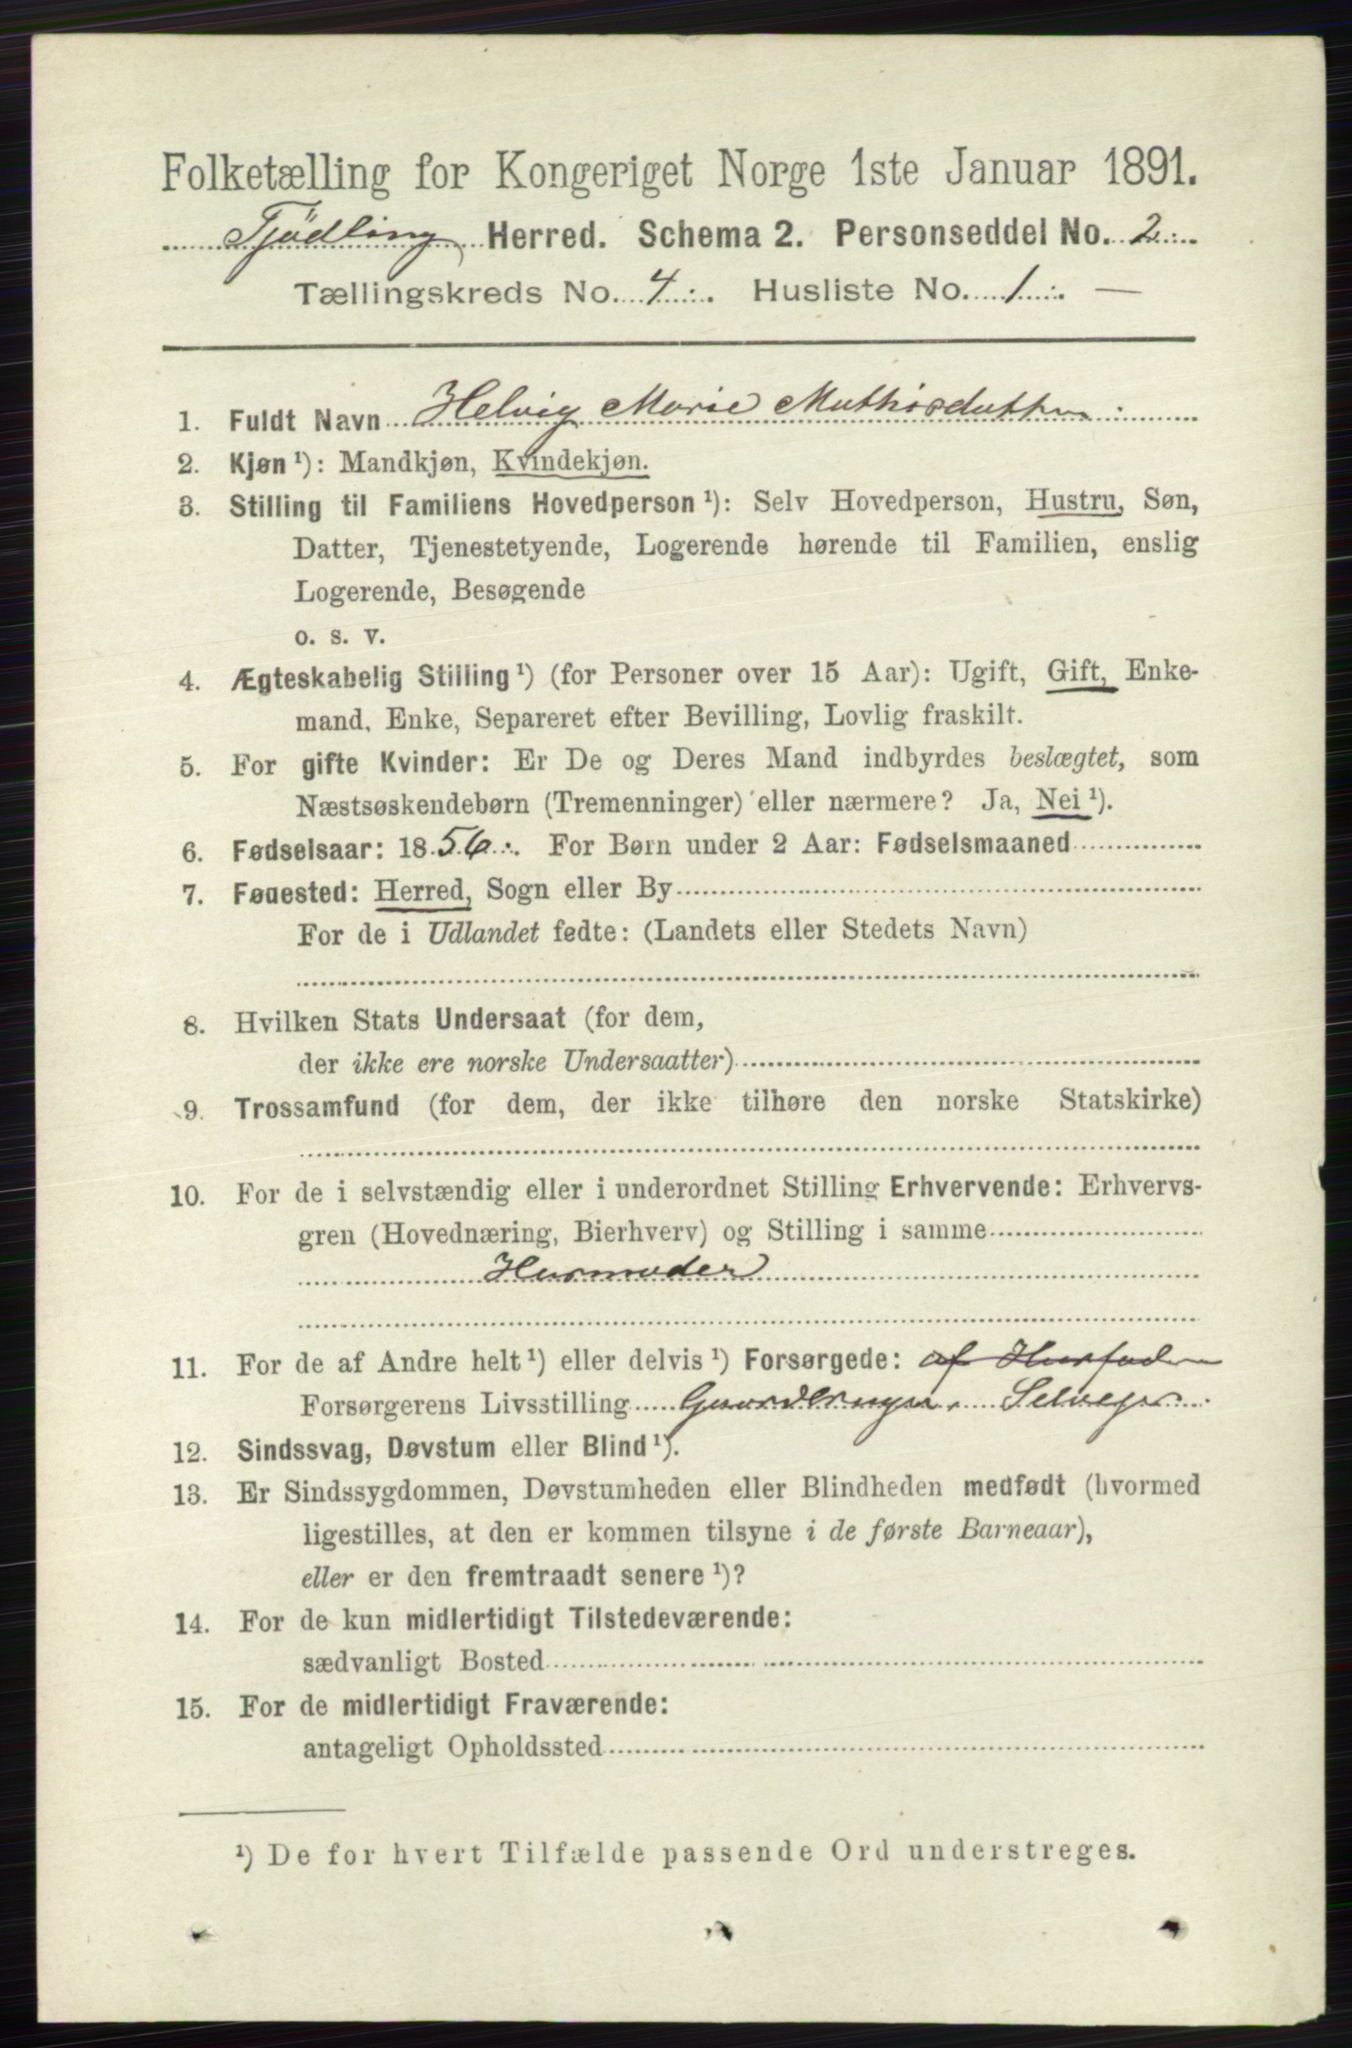 Folketælling for Kongeriget Norge 1ste Januar 1891.
Tjødling Herred. Schema 2. Personseddel No. 2.
Tællingskreds No. 4. Husliste No. 1. —
1. Fuldt Navn Helvig Marie Mathisdatter
2. Kjøn ¹): Mandkjøn, Kvindekjøn.
3. Stilling til Familiens Hovedperson ¹): Selv Hovedperson, Hustru, Søn,
Datter, Tjenestetyende, Logerende hørende til Familien, enslig
Logerende, Besøgende
o. s. v.
4. Ægteskabelig Stilling ¹) (for Personer over 15 Aar): Ugift, Gift, Enke-
mand, Enke, Separeret efter Bevilling, Lovlig fraskilt.
5. For gifte Kvinder: Er De og Deres Mand indbyrdes beslægtet, som
Næstsøskendebørn (Tremenninger) eller nærmere? Ja, Nei ¹).
6. Fødselsaar: 1856. For Børn under 2 Aar: Fødselsmaaned
7. Føuested: Herred, Sogn eller By
For de i Udlandet fødte: (Landets eller Stedets Navn)
8. Hvilken Stats Undersaat (for dem,
der ikke ere norske Undersaatter)
9. Trossamfund (for dem, der ikke tilhøre den norske Statskirke)
10. For de i selvstændig eller i underordnet Stilling Erhvervende: Erhvervs-
gren (Hovednæring, Bierhverv) og Stilling i samme
Husmoder
11. For de af Andre helt ¹) eller delvis ¹) Forsørgede: af Husfaderen
Forsørgerens Livsstilling Gaardbruger. Selveier
12. Sindssvag, Døvstum eller Blind ¹).
13. Er Sindssygdommen, Døvstumheden eller Blindheden medfødt (hvormed
ligestilles, at den er kommen tilsyne i de første Barneaar),
eller er den fremtraadt senere ¹)?
14. For de kun midlertidigt Tilstedeværende:
sædvanligt Bosted
15. For de midlertidigt Fraværende:
antageligt Opholdssted
¹) De for hvert Tilfælde passende Ord understreges.